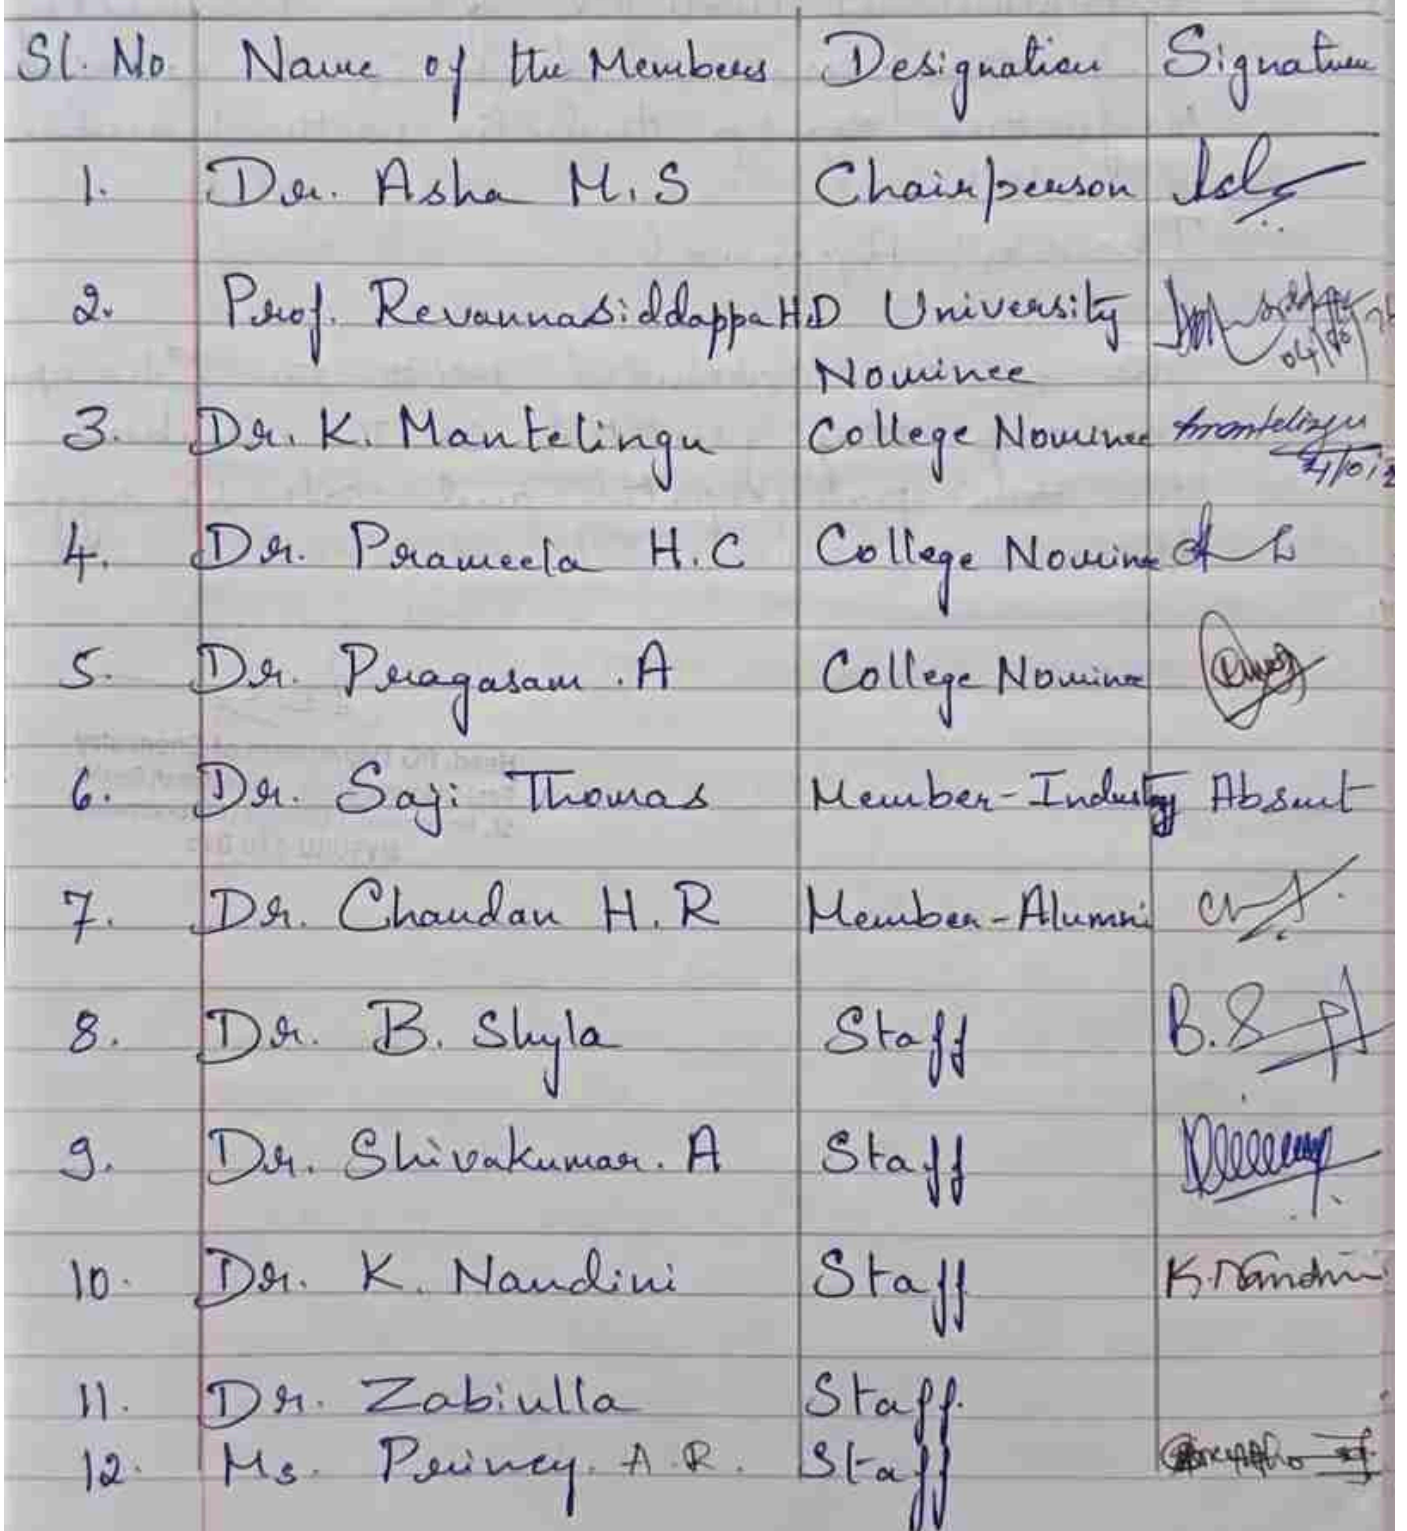 Sl. No. Name of the Members Designation Signature
1. Dr. Asha M.S Chairperson
2. Prof. Revannasiddappa H.D University
Nominee
3. Dr. K. Mantelingu College Nominee
4. Dr. Prameela H.C College Nominee
5. Dr. Pragasam .A College Nominee
6. Dr. Saji Thomas Member-Industry Absent
7. Dr. Chandan H.R Member-Alumni
8. Dr. B. Shyla Staff
9. Dr. Shivakumar. A Staff
10. Dr. K. Nandini Staff K. Nandini
11. Dr. Zabiulla Staff.
12. Ms. Princy. A.R. Staff